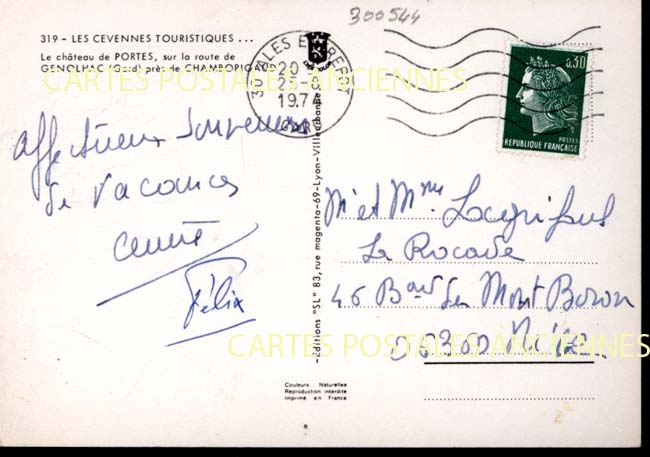 300544
319 - LES CEVENNES TOURISTIQUES ...
Le château de PORTES, sur la route de
GENOLHAC (Gard) près de CHAMBORIGAUD
CARTES POSTALES ANCIENNES
30 ALES
1974
GARD
0,30
POSTES
REPUBLIQUE FRANÇAISE
Affectueux Souvenirs
de Vacances
Félix
-éditions "SL" 83, rue magenta-69-Lyon-Villeurbanne
M et Mme
La Rocade
46 Bard du Mont Boron
06300 Nice
CARTES POSTALES ANCIENNES
Couleurs Naturelles
Reproduction interdite
Imprimé en France